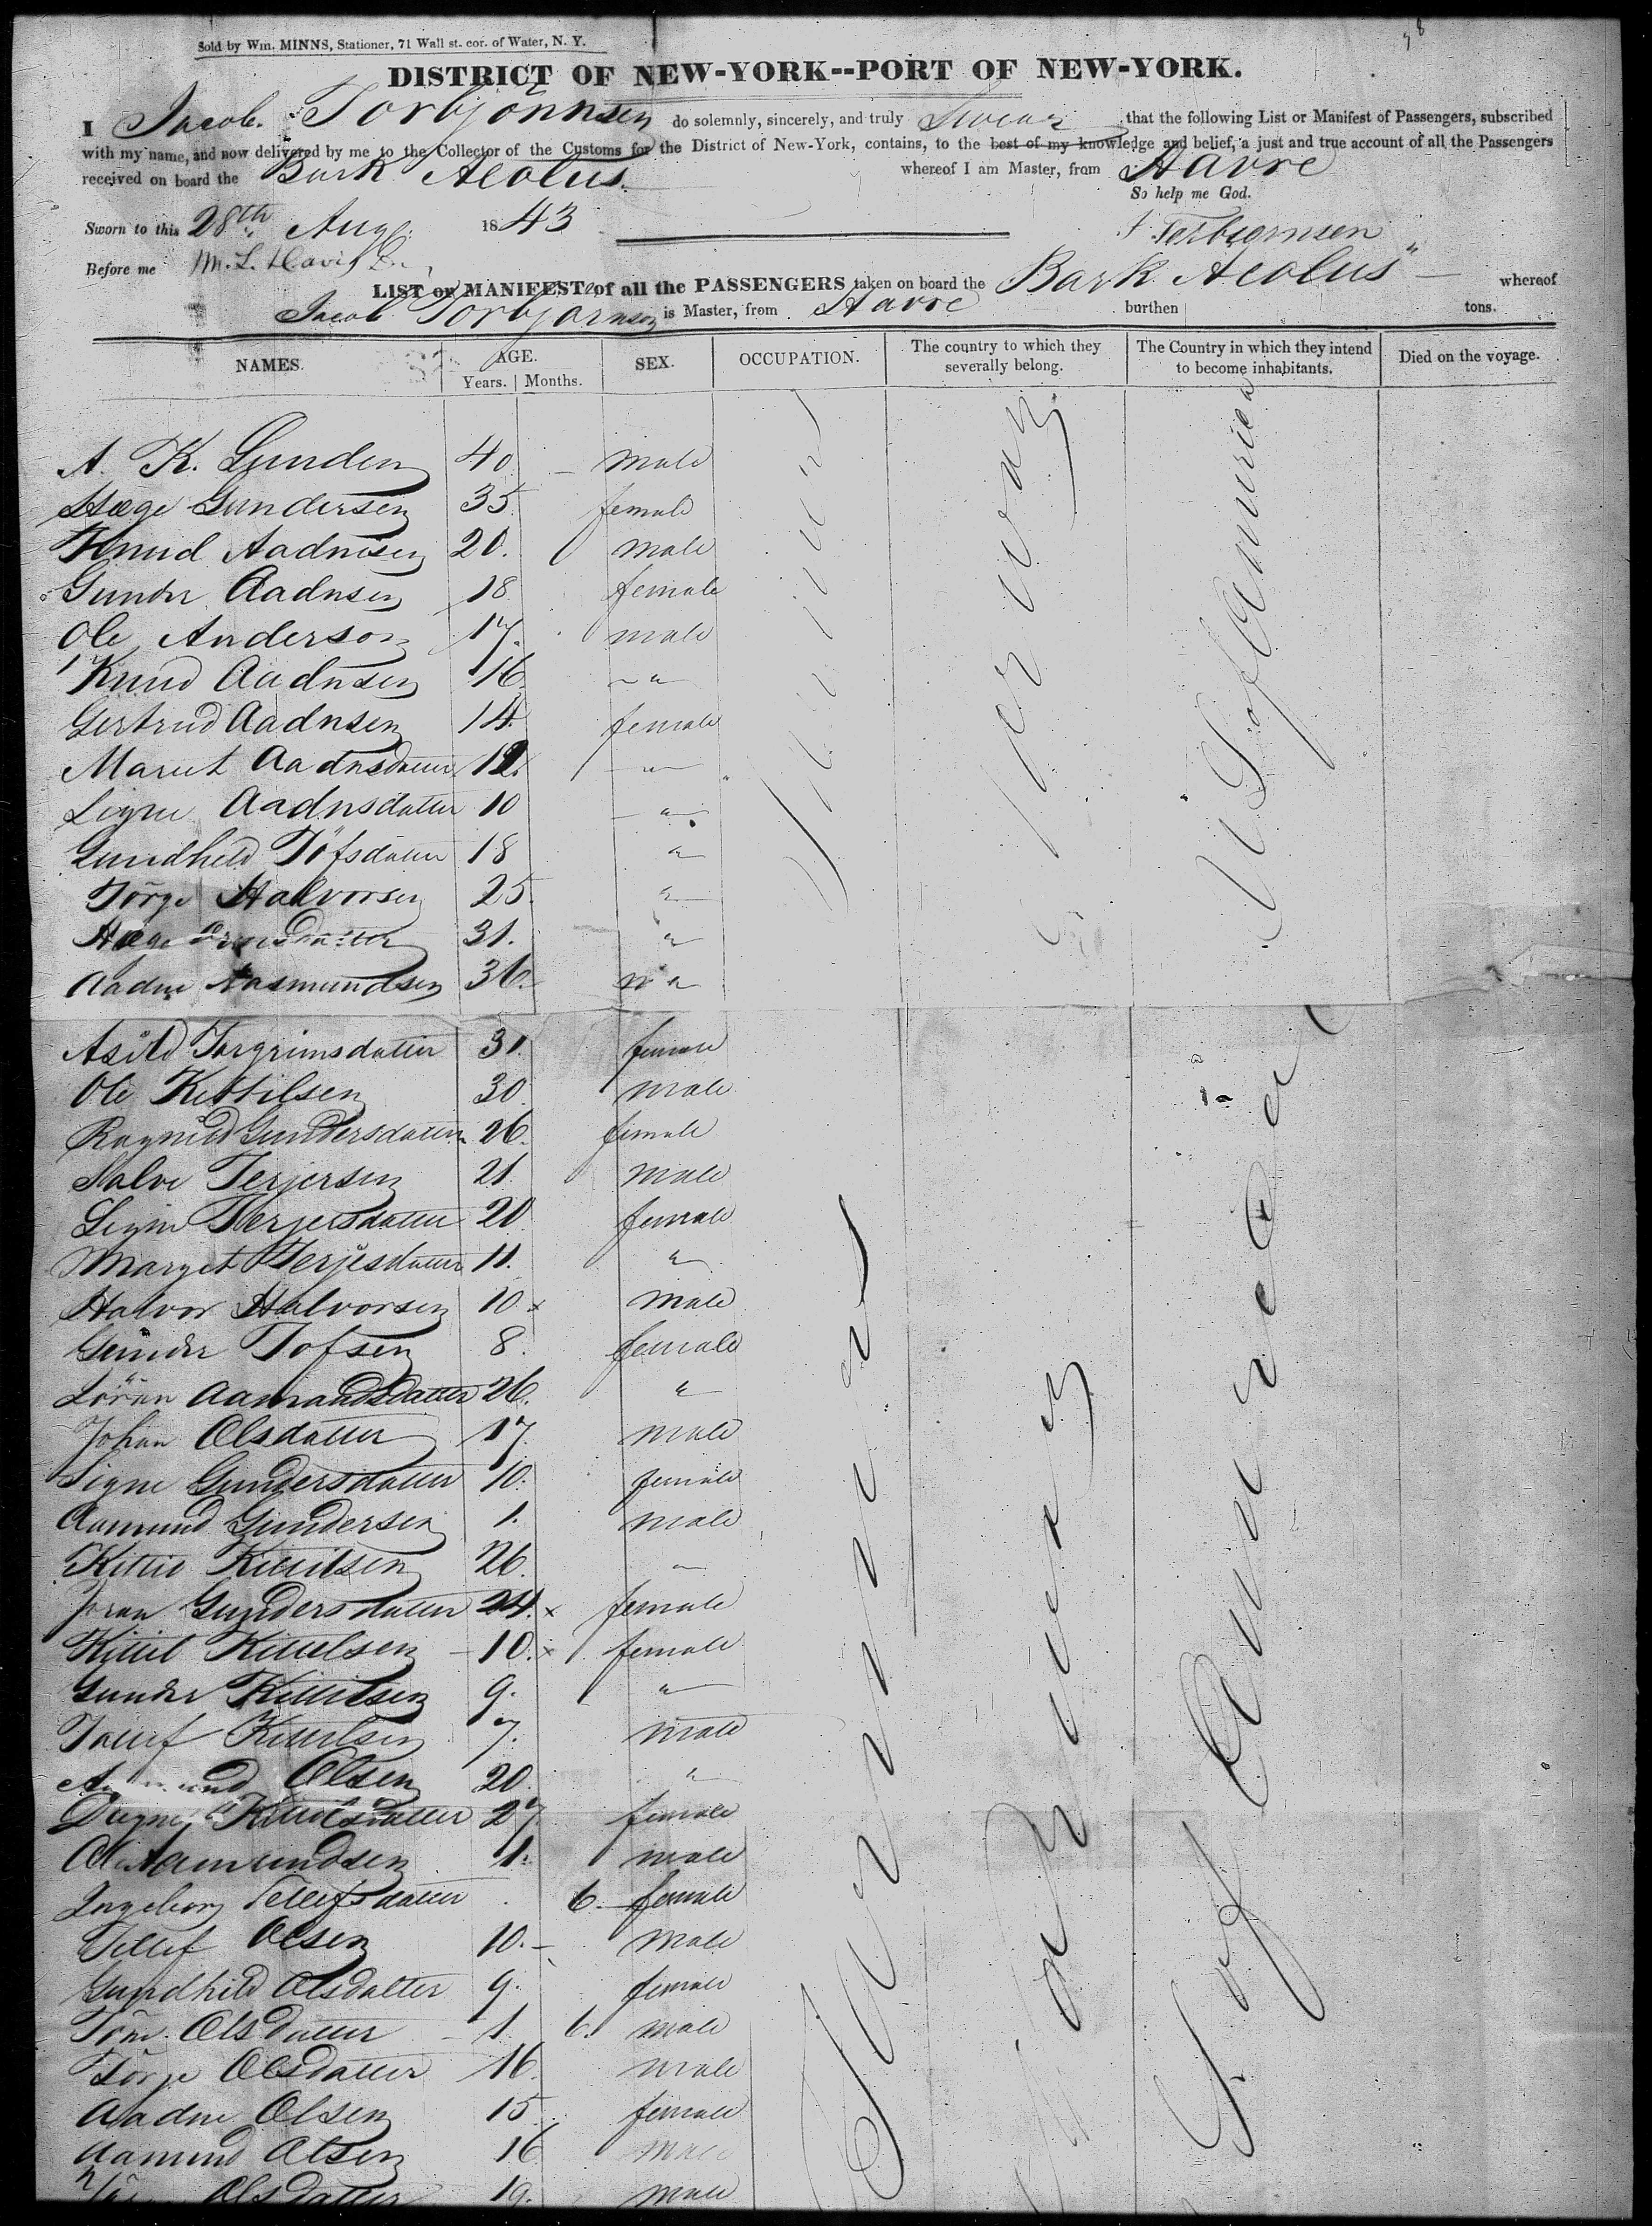 Sold by Wm. MINNS, Stationer, 71 Wall st. cor. of Water, N. Y.
DISTRICT OF NEW-YORK--PORT OF NEW-YORK.
I Jacob Torbjönnsen do solemnly, sincerely, and truly Swear that the following List or Manifest of Passengers, subscribed
with my name, and now delivered by me to the Collector of the Customs for the District of New-York, contains, to the best of my knowledge and belief, a just and true account of all the Passengers
received on board the Bark Aeolus whereof I am Master, from Havre
So help me God.
Sworn to this 28th Aug. 1843
Terbiornsen
Before me M. L. Davis
LIST or MANIFEST of all the PASSENGERS taken on board the Bark Aeolus whereof
Jacob Torbjornsen is Master, from Havre burthen tons.
NAMES. AGE. Years. Months. SEX. OCCUPATION. The country to which they severally belong. The Country in which they intend to become inhabitants. Died on the voyage.
A. K. Gunden 40 male
Hæge Gundersen 35 female
Knud Aadnisen 20. male
Gunder Aadnsen 18 female
Ole Anderson 17. male
Knud Aadnsen 16 "
Gertrud Aadnsen 14 female
Marit Aadnsdatter 12 "
Signe Aadnsdatter 10 "
Gundheld Töfsdatter 18 "
Törge Halvorsen 25 "
Hæge 31. "
Aadne Aasmundsen 36. "
Asild Torgrimsdatter 31. female
Ole Kettilsen 30 male
Ragnild Gundersdatter 26. female
Salve Terjersen 21 male
Signe Terjersdatter 20 female
Marget Terjesdatter 11. "
Halvor Halvorsen 10 x male
Gunder Tofsen 8. female
Löran Aamandsdatter 26. "
Johan Olsdatter 17. male
Signe Gundersdatter 10. female
Aamund Gundersen 1. male
Kittil Kittilsen 26. "
Joran Gundersdatter 24. x female
Kittil Kittelsen 10. x female
Gunder Kittilsen 9. "
Tellef Kittilsen 7. male
Olsen 20 "
Kittilsdatter 27 female
Ole Aamundsen 1. male
Ingeborg Tellefsdatter 6. female
Tellef Olsen 10. male
Gundhild Olsdatter 9. female
Töne Olsdatter 1 6. male
Törje Olsdatter 16 male
Aadne Olsen 15 female
Aamund Olsen 16 male
Olsdatter 19. male
Farmers
Norway
U S of America
Farmers
Norway
U S of America